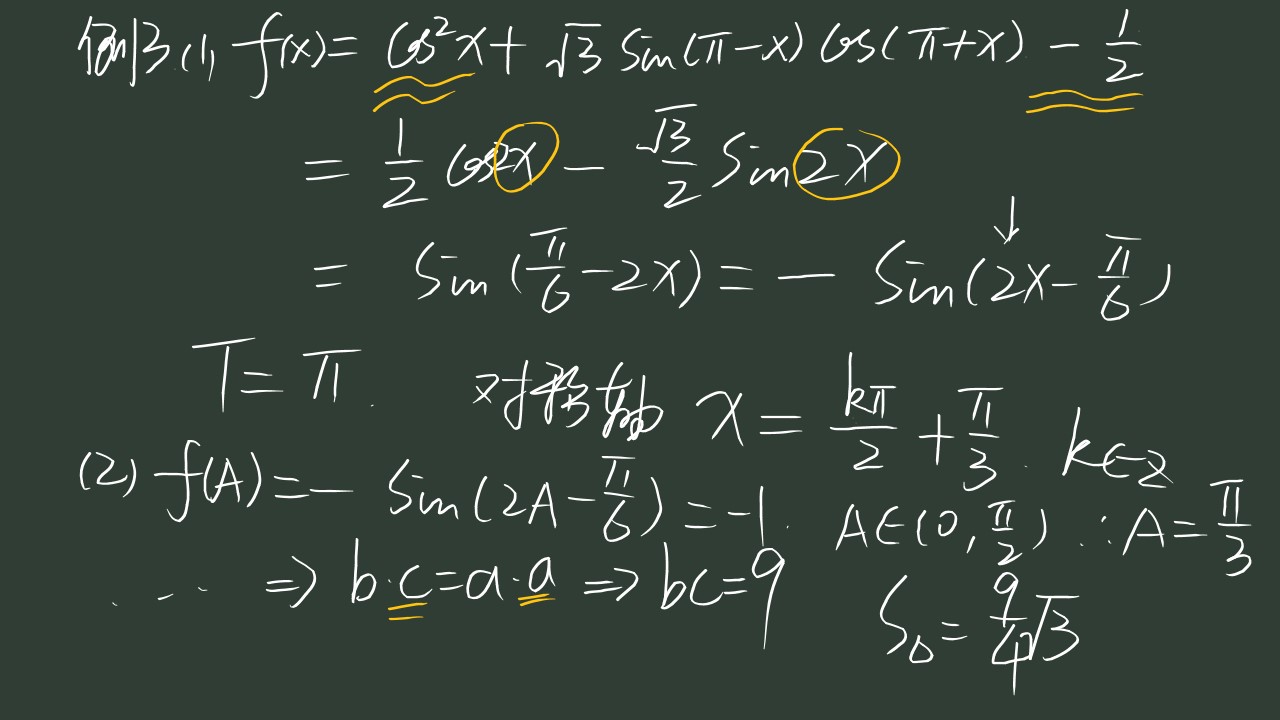 例3(1) f(x)= cos²x+√3 sin(π-x) cos(π+x) - 1/2
= 1/2 cos2x - √3/2 sin2x
= sin(π/6-2x) = - sin(2x-π/6)
T=π. 对称轴 x = kπ/2 + π/3. k∈z
(2) f(A)=- sin(2A-π/6)=-1. A∈(0,π/2) ∴A=π/3
... ⇒ b·c=a·a ⇒ bc=9 S△=9/4√3